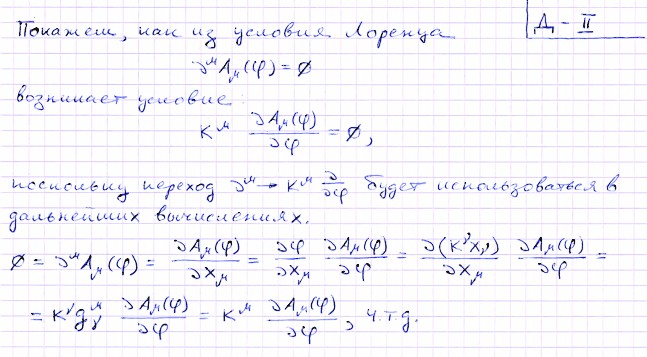 Д - II
Покажем, как из условия Лоренца
∂^μ A_μ(φ) = 0
возникает условие
K^μ ∂A_μ(φ)/∂φ = 0,
поскольку переход ∂^μ → K^μ ∂/∂φ будет использоваться в
дальнейших вычислениях.
0 = ∂^μ A_μ(φ) = ∂A_μ(φ)/∂x_μ = ∂φ/∂x_μ ∂A_μ(φ)/∂φ = ∂(K^ν x_ν)/∂x_μ ∂A_μ(φ)/∂φ =
= K^ν g_ν^μ ∂A_μ(φ)/∂φ = K^μ ∂A_μ(φ)/∂φ, ч.т.д.